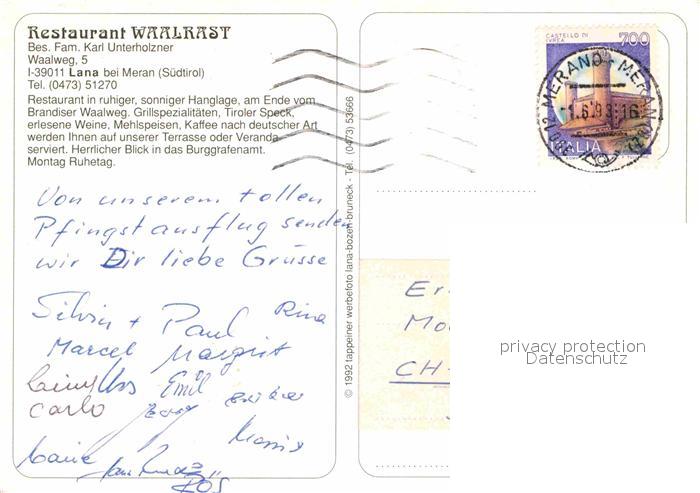 Restaurant WAALRAST
Bes. Fam. Karl Unterholzner
Waalweg, 5
I-39011 Lana bei Meran (Südtirol)
Tel. (0473) 51270
Restaurant in ruhiger, sonniger Hanglage, am Ende vom
Brandiser Waalweg. Grillspezialitäten, Tiroler Speck,
erlesene Weine, Mehlspeisen, Kaffee nach deutscher Art
werden Ihnen auf unserer Terrasse oder Veranda
serviert. Herrlicher Blick in das Burggrafenamt.
Montag Ruhetag.
Von unserem tollen
Pfingstausflug senden
wir Dir liebe Grüsse
Silvia + Paul Rina
Marcel Margrit
Urs Emil
Carlo
RÖS
© 1992 tappeiner werbefoto lana-bozen-bruneck - Tel. (0473) 53666
CASTELLO DI
IVREA
700
ITALIA
MERANO - MERAN
1.6.93.16
Er
Mo
CH-
privacy protection
Datenschutz